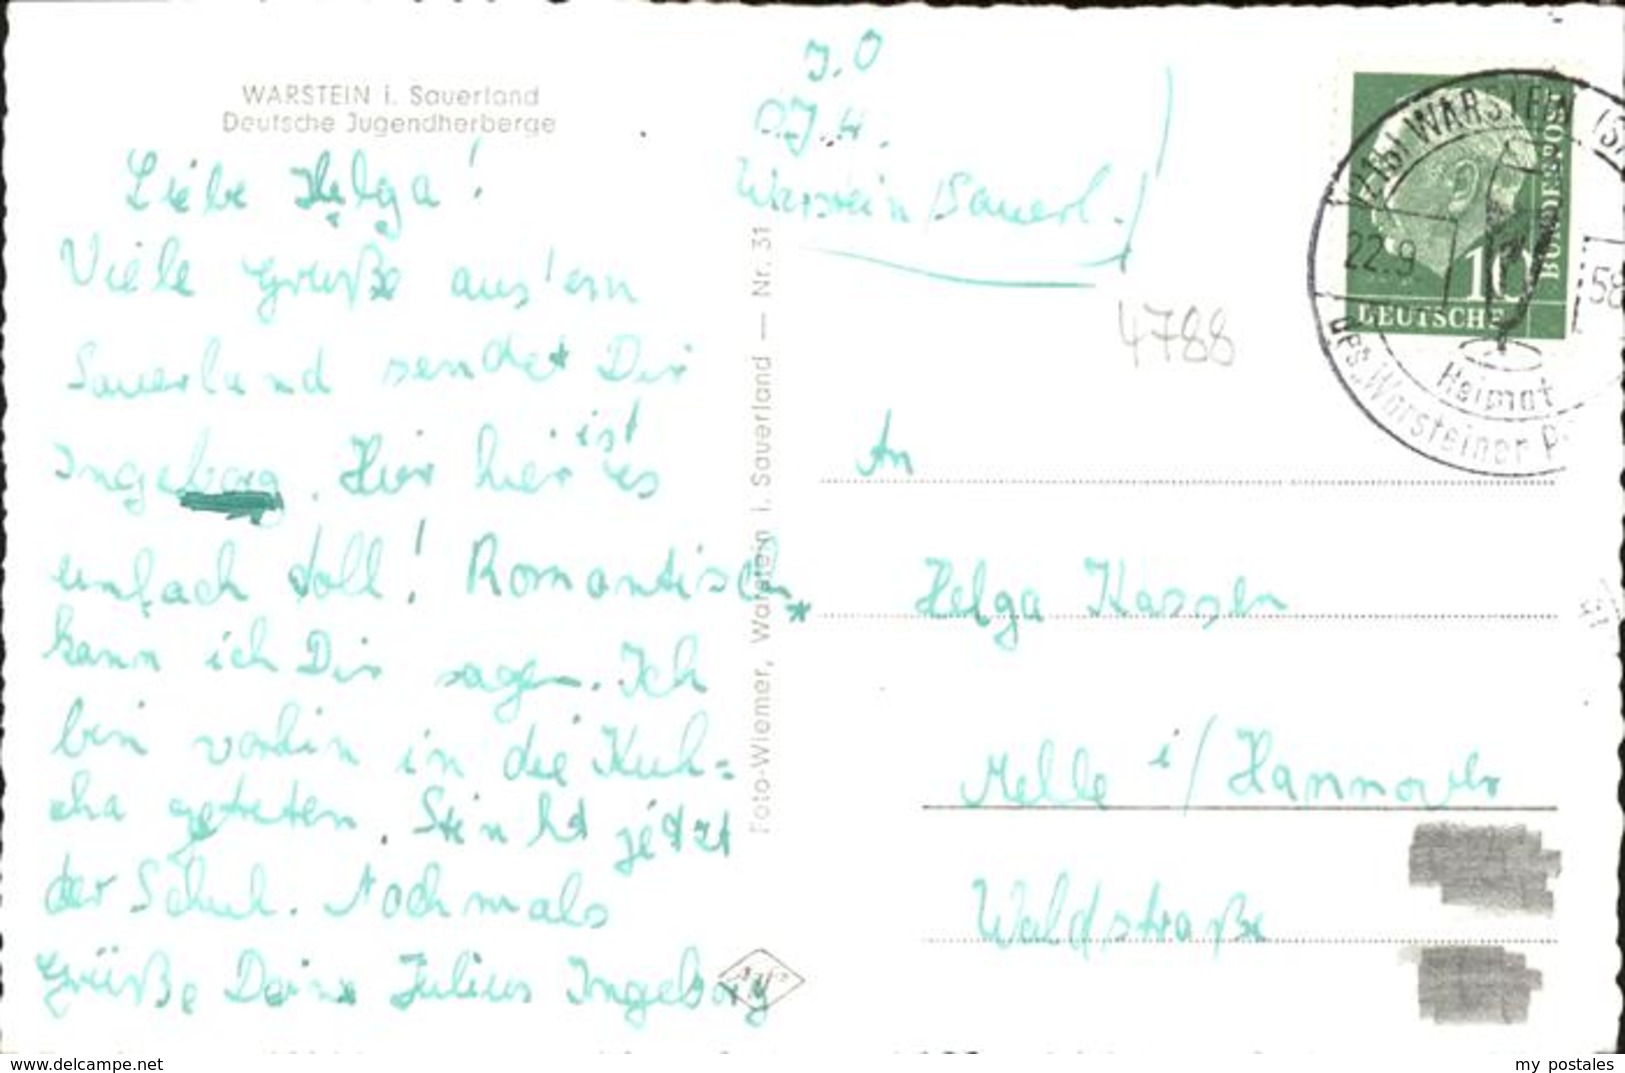 WARSTEIN i. Sauerland
Deutsche Jugendherberge
Liebe Helga!
Viele Grüße aus'em
Sauerland sendet Dir
Ingeborg. Hier hier ist es
einfach toll! Romantisch
kann ich Dir sagen. Ich
bin vorhin in die Kuh-
cka getreten. Stinkt jetzt
der Schuh. Nochmals
Grüße Deine Julius Ingeborg
Foto-Wiemer, Warstein i. Sauerland — Nr. 31
z. Z
D.J.H.
Warstein/Sauerl.
4788
(21b) WARSTEIN
22.9
58
Heimat
des "Warsteiner
DEUTSCHE
BUNDESPOST
10
An
Helga Kassen
Melle i/Hannover
Waldstraße
delcampe.net
my_postales